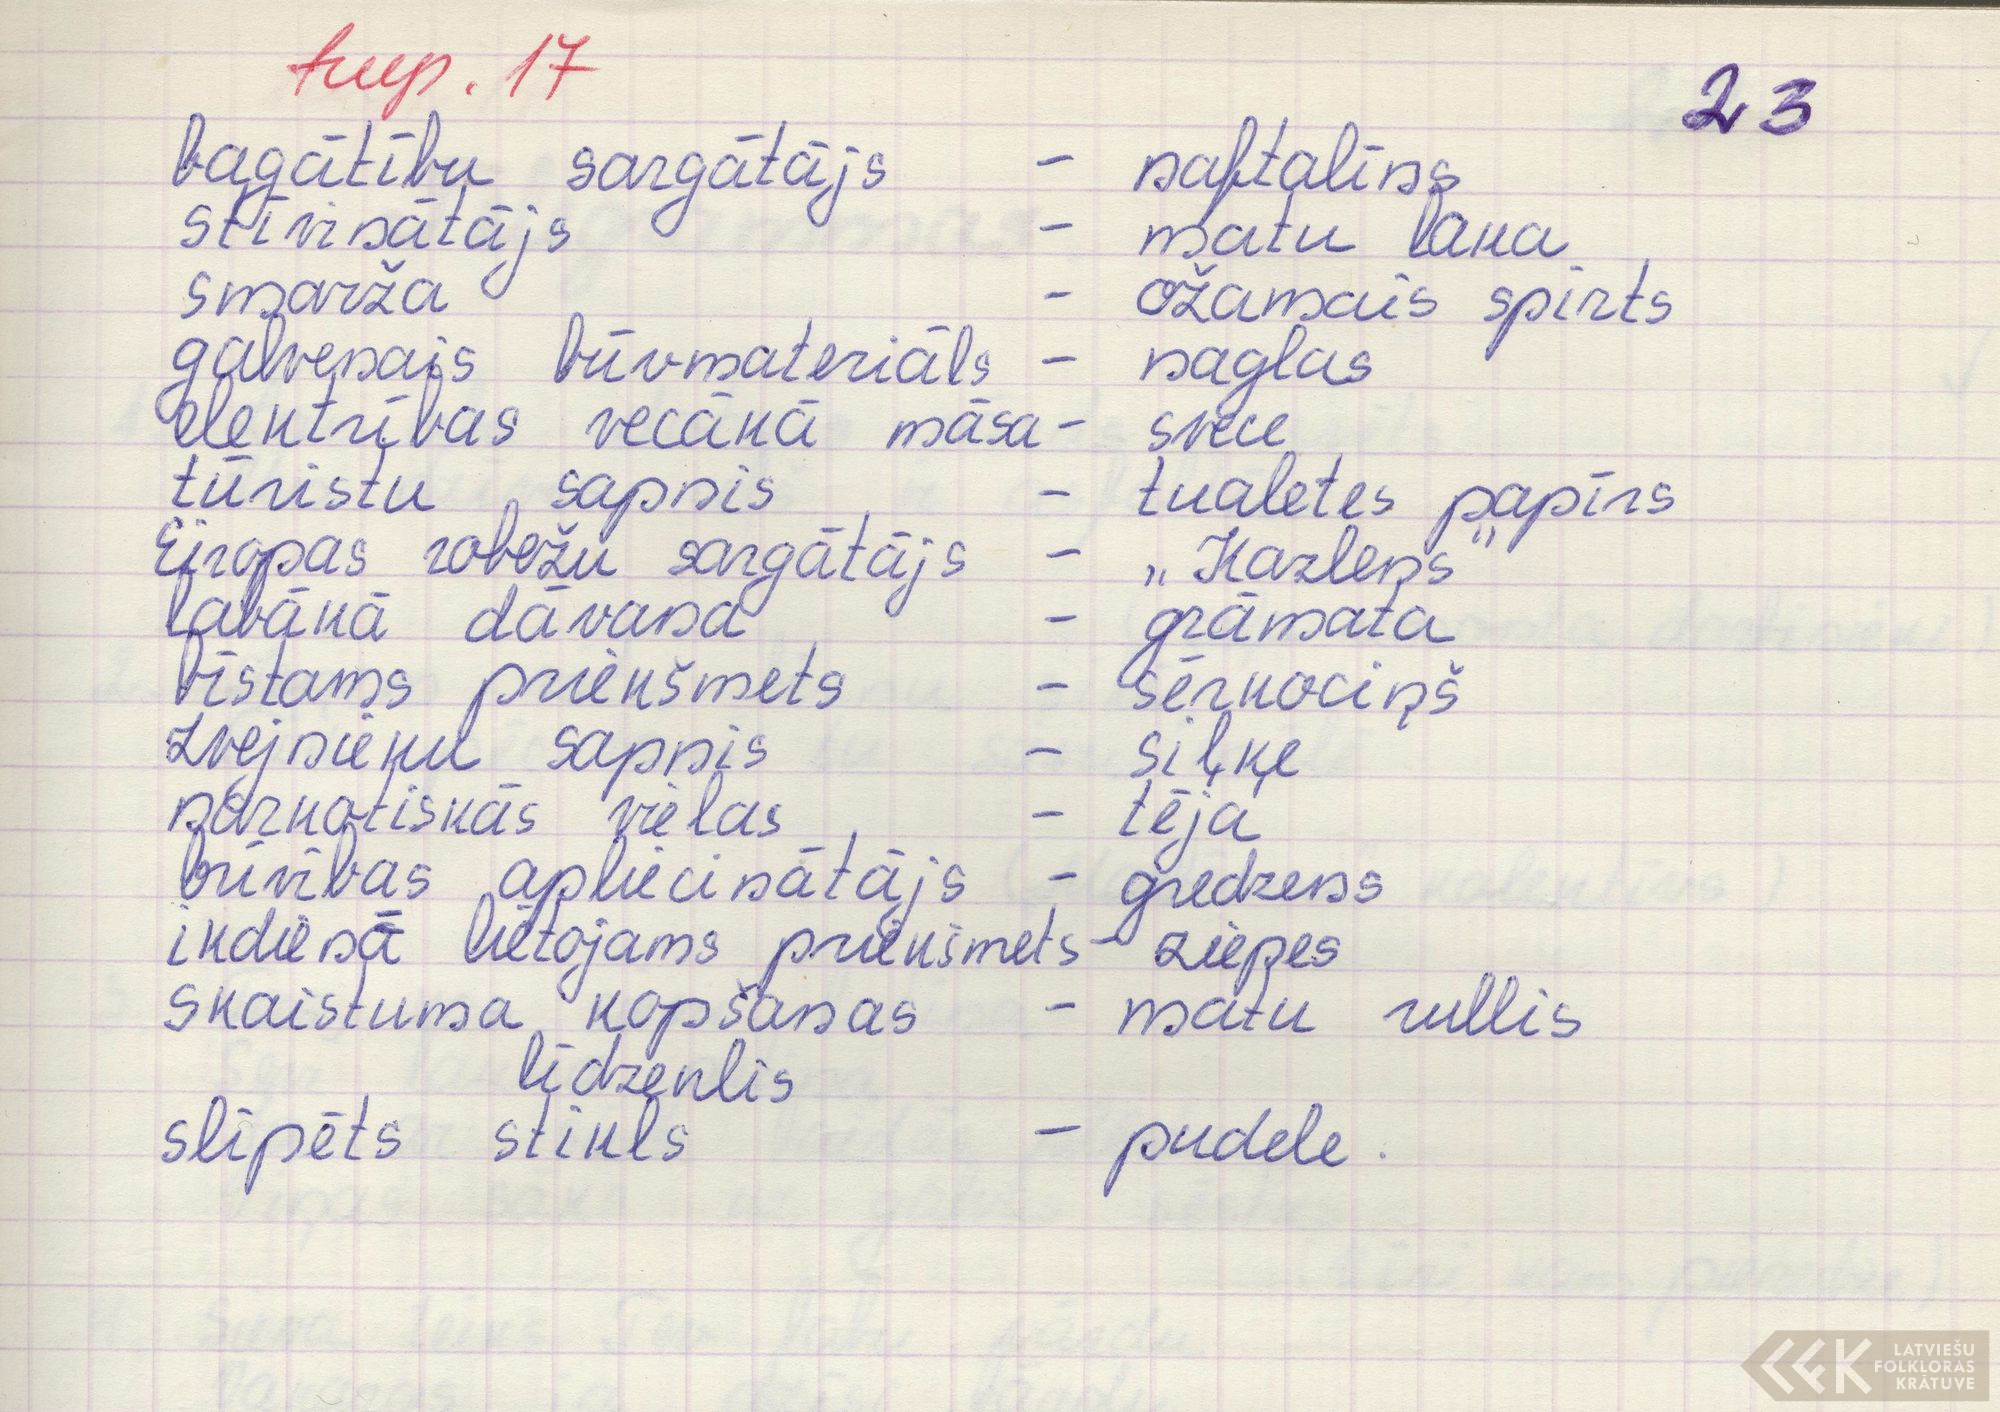 turp. 17
23
bagātību sargātājs – naftalīns
stīvinātājs – matu laka
smarža – ožamais spirts
galvenais būvmateriāls – naglas
elektrības vecākā māsa – svece
tūristu sapnis – tualetes papīrs
Eiropas robežu sargātājs – „Kazlens"
labākā dāvana – grāmata
bīstams priekšmets – sērkociņš
zvejnieku sapnis – siļķe
narkotiskās vielas – tēja
brīvības apliecinātājs – gredzens
ikdienā lietojams priekšmets – ziepes
skaistuma kopšanas – matu rullis
līdzenlis
slīpēts stikls – pudele.
LATVIEŠU
FOLKLORAS
KRĀTUVE